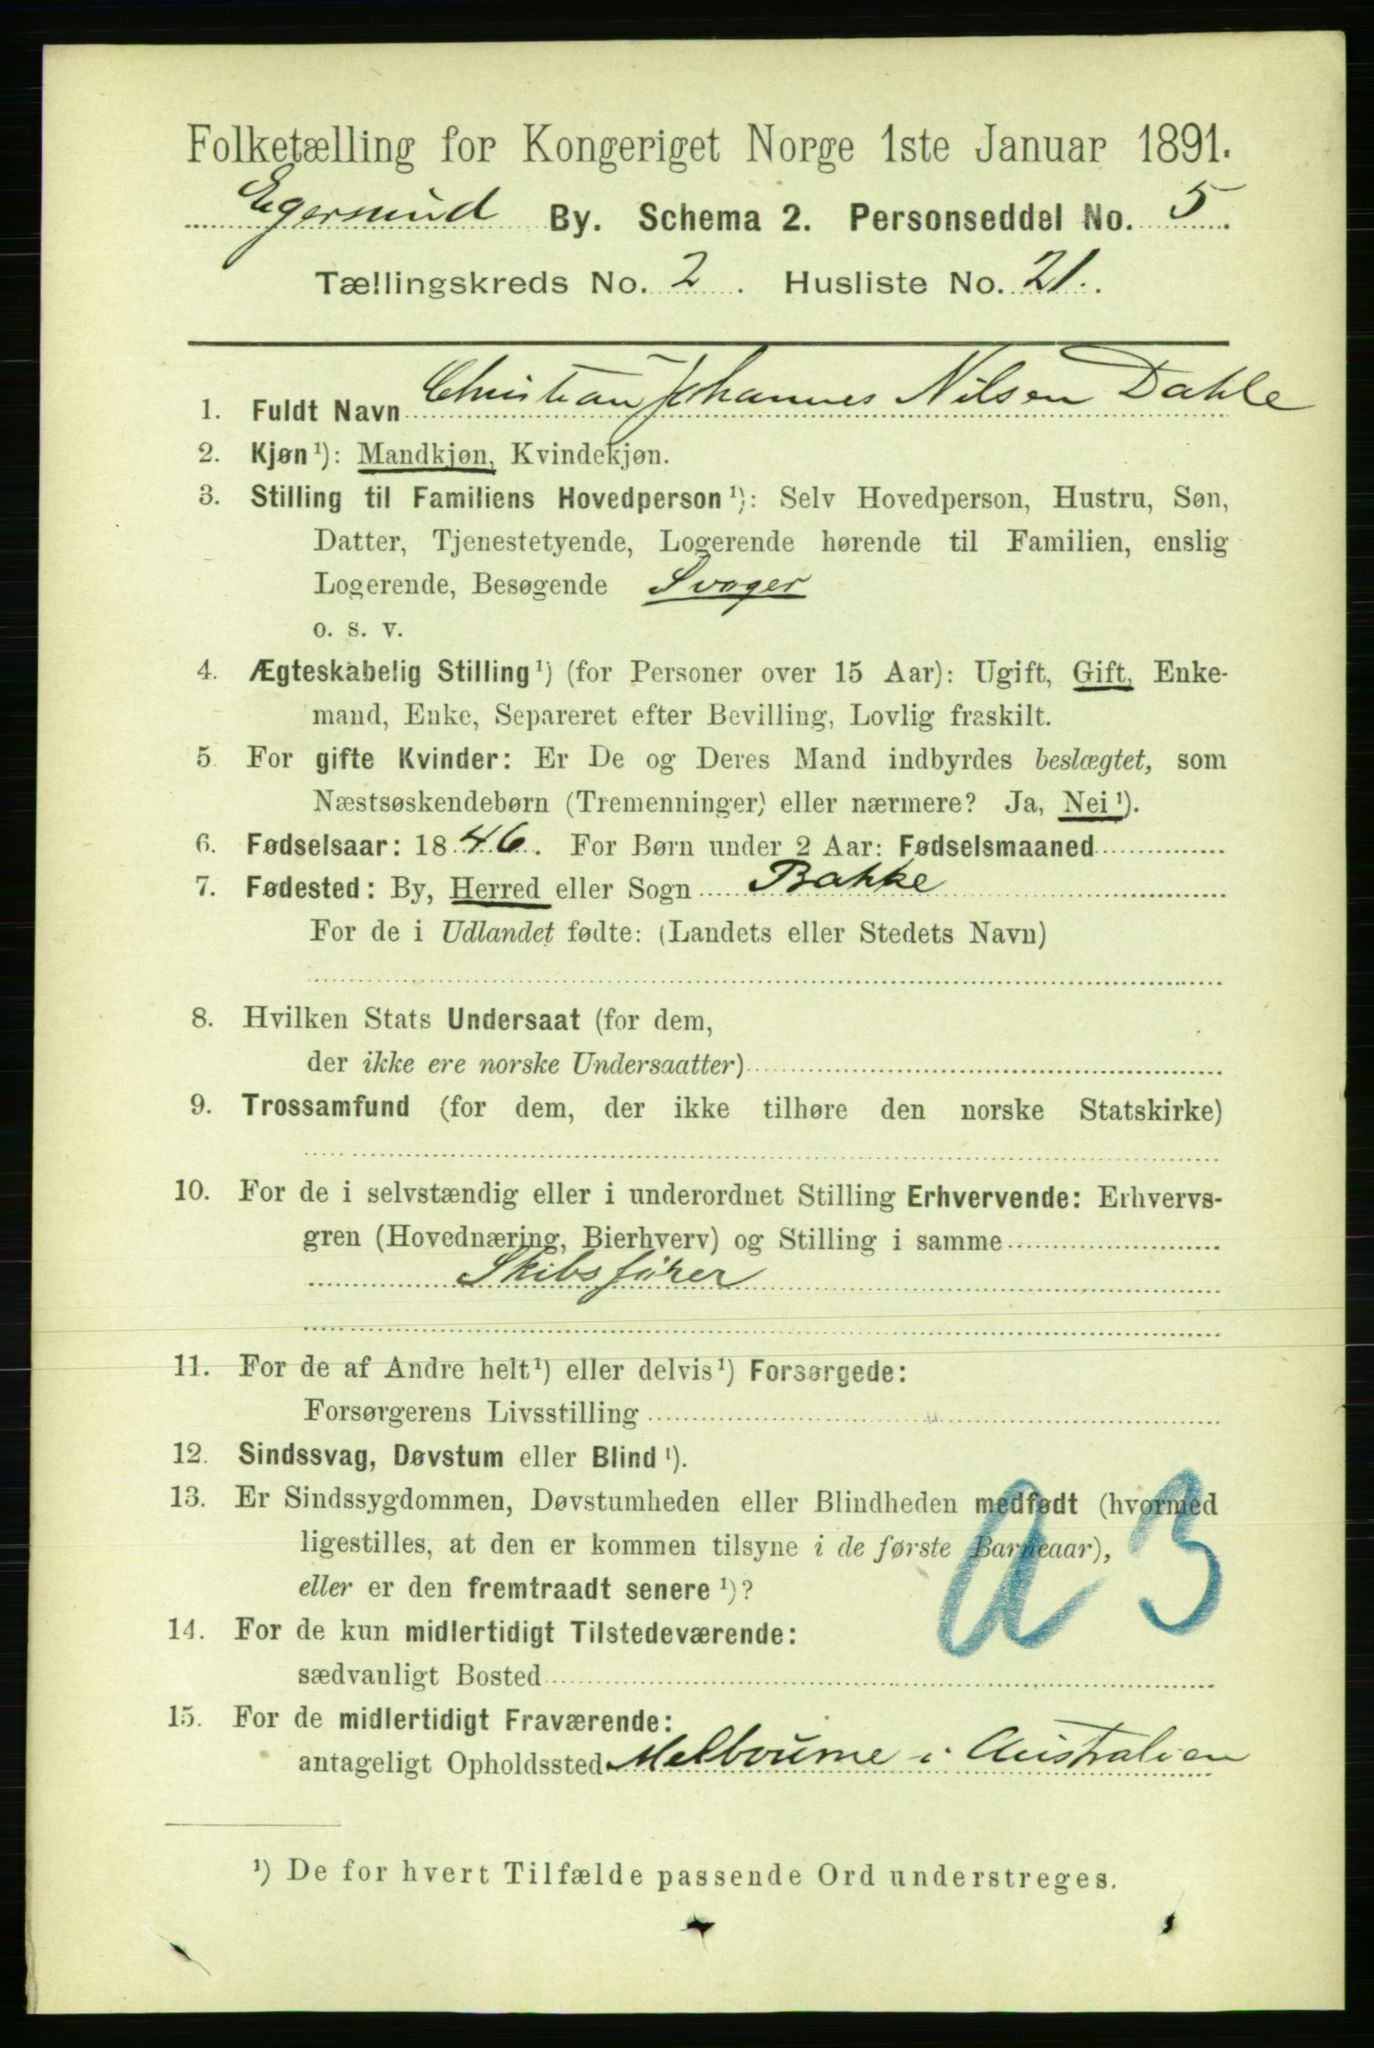 Folketælling for Kongeriget Norge 1ste Januar 1891.
Egersund By. Schema 2. Personseddel No. 5.
Tællingskreds No. 2. Husliste No. 21.
1. Fuldt Navn Christian Johannes Nilsen Dahle
2. Kjøn¹): Mandkjøn, Kvindekjøn.
3. Stilling til Familiens Hovedperson¹): Selv Hovedperson, Hustru, Søn,
Datter, Tjenestetyende, Logerende hørende til Familien, enslig
Logerende, Besøgende Svoger
o. s. v.
4. Ægteskabelig Stilling¹) (for Personer over 15 Aar): Ugift, Gift, Enke-
mand, Enke, Separeret efter Bevilling, Lovlig fraskilt.
5. For gifte Kvinder: Er De og Deres Mand indbyrdes beslægtet, som
Næstsøskendebørn (Tremenninger) eller nærmere? Ja, Nei¹).
6. Fødselsaar: 1846. For Børn under 2 Aar: Fødselsmaaned
7. Fødested: By, Herred eller Sogn Bakke
For de i Udlandet fødte: (Landets eller Stedets Navn)
8. Hvilken Stats Undersaat (for dem,
der ikke ere norske Undersaatter)
9. Trossamfund (for dem, der ikke tilhøre den norske Statskirke)
10. For de i selvstændig eller i underordnet Stilling Erhvervende: Erhvervs-
gren (Hovednæring, Bierhverv) og Stilling i samme
Skibsfører
11. For de af Andre helt¹) eller delvis¹) Forsørgede:
Forsørgerens Livsstilling
12. Sindssvag, Døvstum eller Blind¹).
13. Er Sindssygdommen, Døvstumheden eller Blindheden medfødt (hvormed
ligestilles, at den er kommen tilsyne i de første Barneaar),
eller er den fremtraadt senere¹)?
a 3
14. For de kun midlertidigt Tilstedeværende:
sædvanligt Bosted
15. For de midlertidigt Fraværende:
antageligt Opholdssted Melbourne i Australien
¹) De for hvert Tilfælde passende Ord understreges.